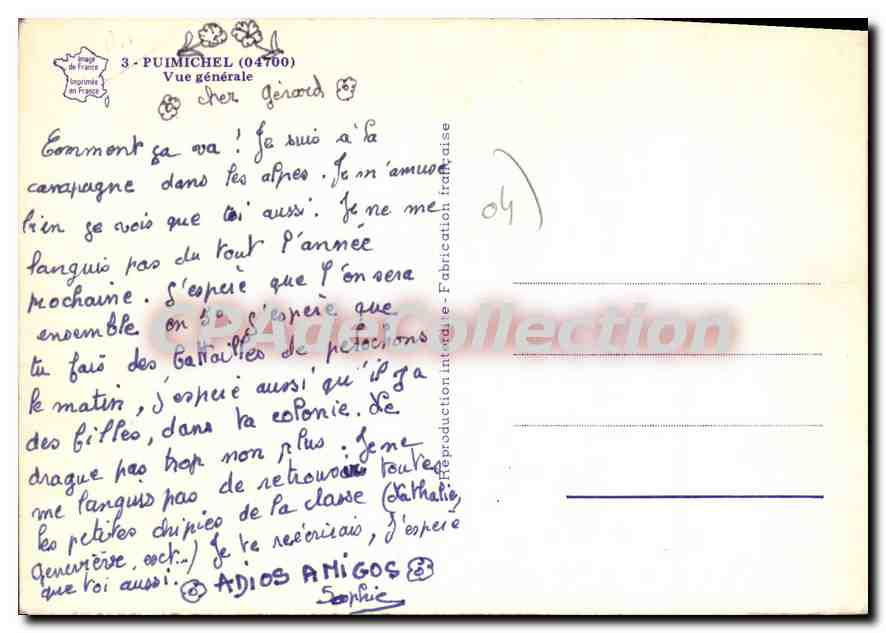 Image
de France
Imprimée
en France
3 - PUIMICHEL (04700)
Vue générale
cher Gérard
Comment ça va ! Je suis à la
campagne dans les alpes. Je m'amuse
bien je vois que toi aussi. Je ne me
languis pas du tout l'année
prochaine. J'espère que l'on sera
ensemble en 5e J'espère que
tu fais des battailles de polochons
le matin, j'espère aussi qu'il y a
des filles, dans ta colonie. Ne
drague pas trop non plus. Je ne
me languis pas de retrouver toutes
les petites chipies de la classe (Nathalie,
Geneviève, ect...) Je te réécrirais, j'espère
que toi aussi. ADIOS AMIGOS
Sophie
Reproduction interdite - Fabrication française
04
CPAdeCollection